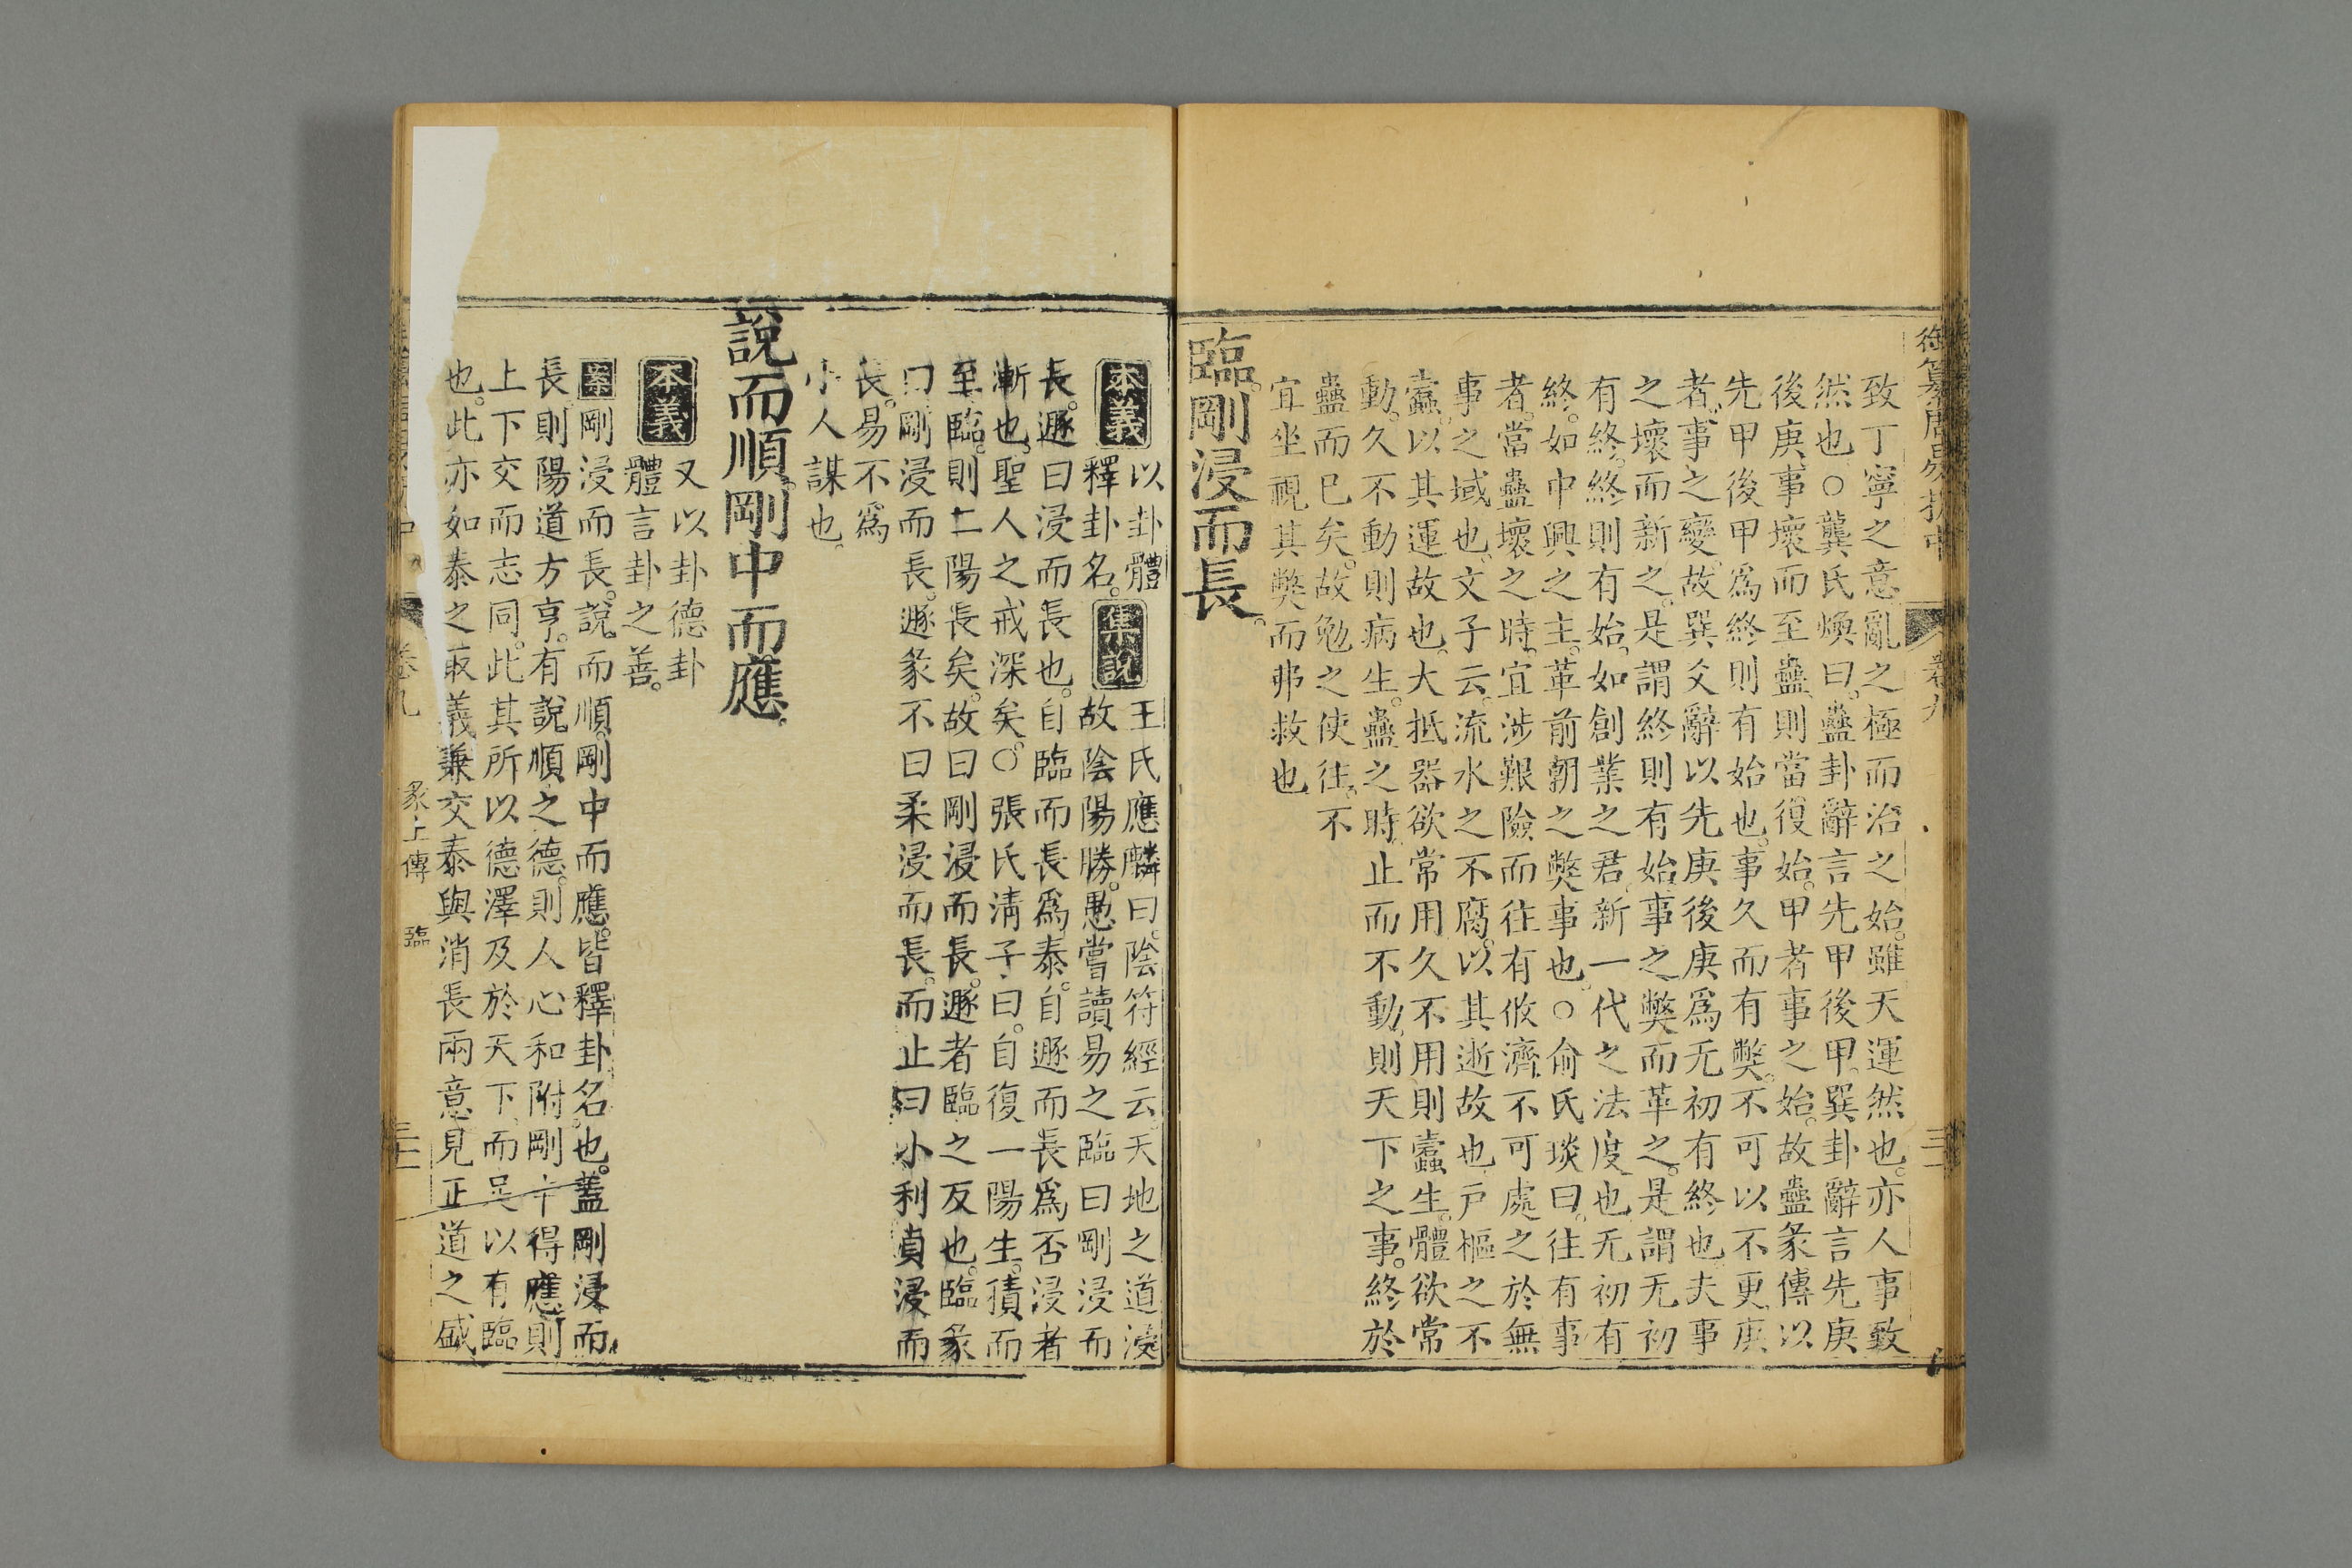 御纂周易折中 卷九
致丁寧之意亂之極而治之始雖天運然也亦人事致
然也○龔氏煥曰蠱卦辭言先甲後甲巽卦辭言先庚
後庚事壞而至蠱則當復始甲者事之始故蠱彖傳以
先甲後甲爲終則有始也事久而有弊不可以不更庚
者事之變故巽爻辭以先庚後庚爲无初有終也夫事
之壞而新之是謂終則有始事之弊而革之是謂无初
有終終則有始如創業之君新一代之法度也无初有
終如中興之主革前朝之弊事也○俞氏琰曰往有事
者當蠱壞之時宜涉艱險而往有攸濟不可處之於無
事之域也文子云流水之不腐以其逝故也戸樞之不
蠹以其運故也大抵器欲常用久不用則蠹生體欲常
動久不動則病生蠱之時止而不動則天下之事終於
蠱而已矣故勉之使往不
宜坐視其弊而弗救也
臨剛浸而長
本義 以卦體
釋卦名 集說 王氏應麟曰陰符經云天地之道浸
故陰陽勝愚嘗讀易之臨曰剛浸而
長遯曰浸而長也自臨而長爲泰自遯而長爲否浸者
漸也聖人之戒深矣○張氏淸子曰自復一陽生積而
至臨則二陽長矣故曰剛浸而長遯者臨之反也臨彖
曰剛浸而長遯彖不曰柔浸而長而止曰小利貞浸而
長易不爲
小人謀也
說而順剛中而應
本義 又以卦德卦
體言卦之善
案 剛浸而長說而順剛中而應皆釋卦名也蓋剛浸而
長則陽道方亨有說順之德則人心和附剛中得應則
上下交而志同此其所以德澤及於天下而足以有臨
也此亦如泰之取義兼交泰與消長兩意見正道之盛
卷九 彖上傳 臨